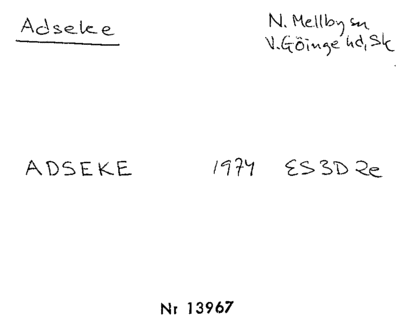 Adseke
N. Mellby sn
V. Göinge hd, Sk
ADSEKE 1974 ES3D2e
Nr 13967